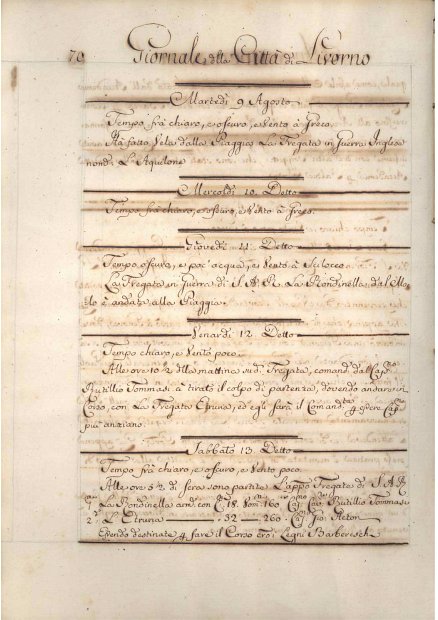 70 Giornale della Città di Livorno
Martedì 9 Agosto
Tempo frà chiaro, e oscuro, e Vento à Greco.
Hà fatto Vela dalla Piaggia La Fregata in Guerra Inglese
nond: L'Aquilone
Mercoldì 10 Detto
Tempo frà chiaro, e oscuro, e Vento à Greco.
Giovedì 11 Detto
Tempo oscuro, e poc' acqua, e Vento à Scilocco
La Fregata in Guerra di S. A. R. La Rondinella, dal Mo-
lo è andata alla Piaggia.
Venardì 12 Detto
Tempo chiaro, e Vento poco.
Alle ore 10 2 della mattina sud. Fregata, comand. dall Capno
Rutilio Tommasi à tirato il colpo di partenza, dovendo andare in
Corso, con La Fregata Etruria, ed egli farà il Comandte p essere Capno
più anziano.
Sabbato 13 Detto
Tempo frà chiaro, e oscuro, e Vento poco.
Alle ore 5 ½ di sera sono partite L'appo Fregate di S. A. R.
La Rondinella arm. con C. 18. Uom. 160 Rutilio Tommasi
2a L'Etruria — 32 — 260 Gio: Acton
Essendo destinate p fare il Corso cro i Legni Barbereschi